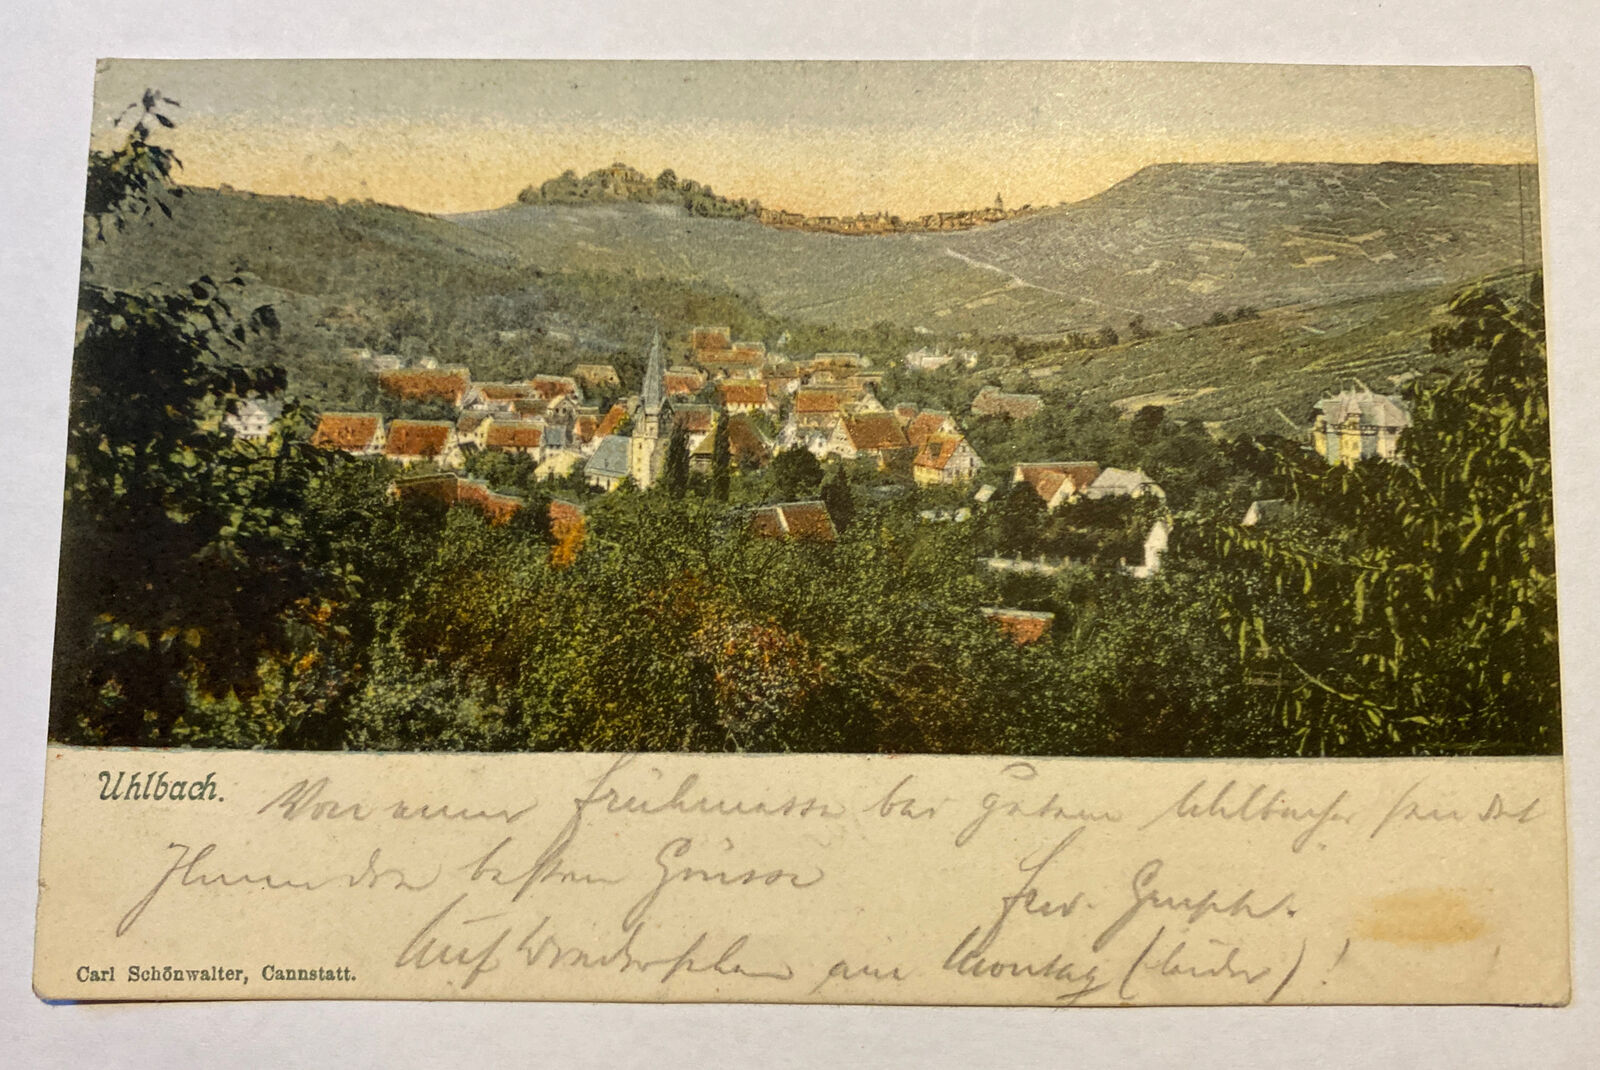 Uhlbach.
Von einer Frühmesse bei gutem Uhlbacher sendet
Ihnen den besten Grüsse
Auf Wiedersehen am Montag (leider)!
Carl Schönwalter, Cannstatt.